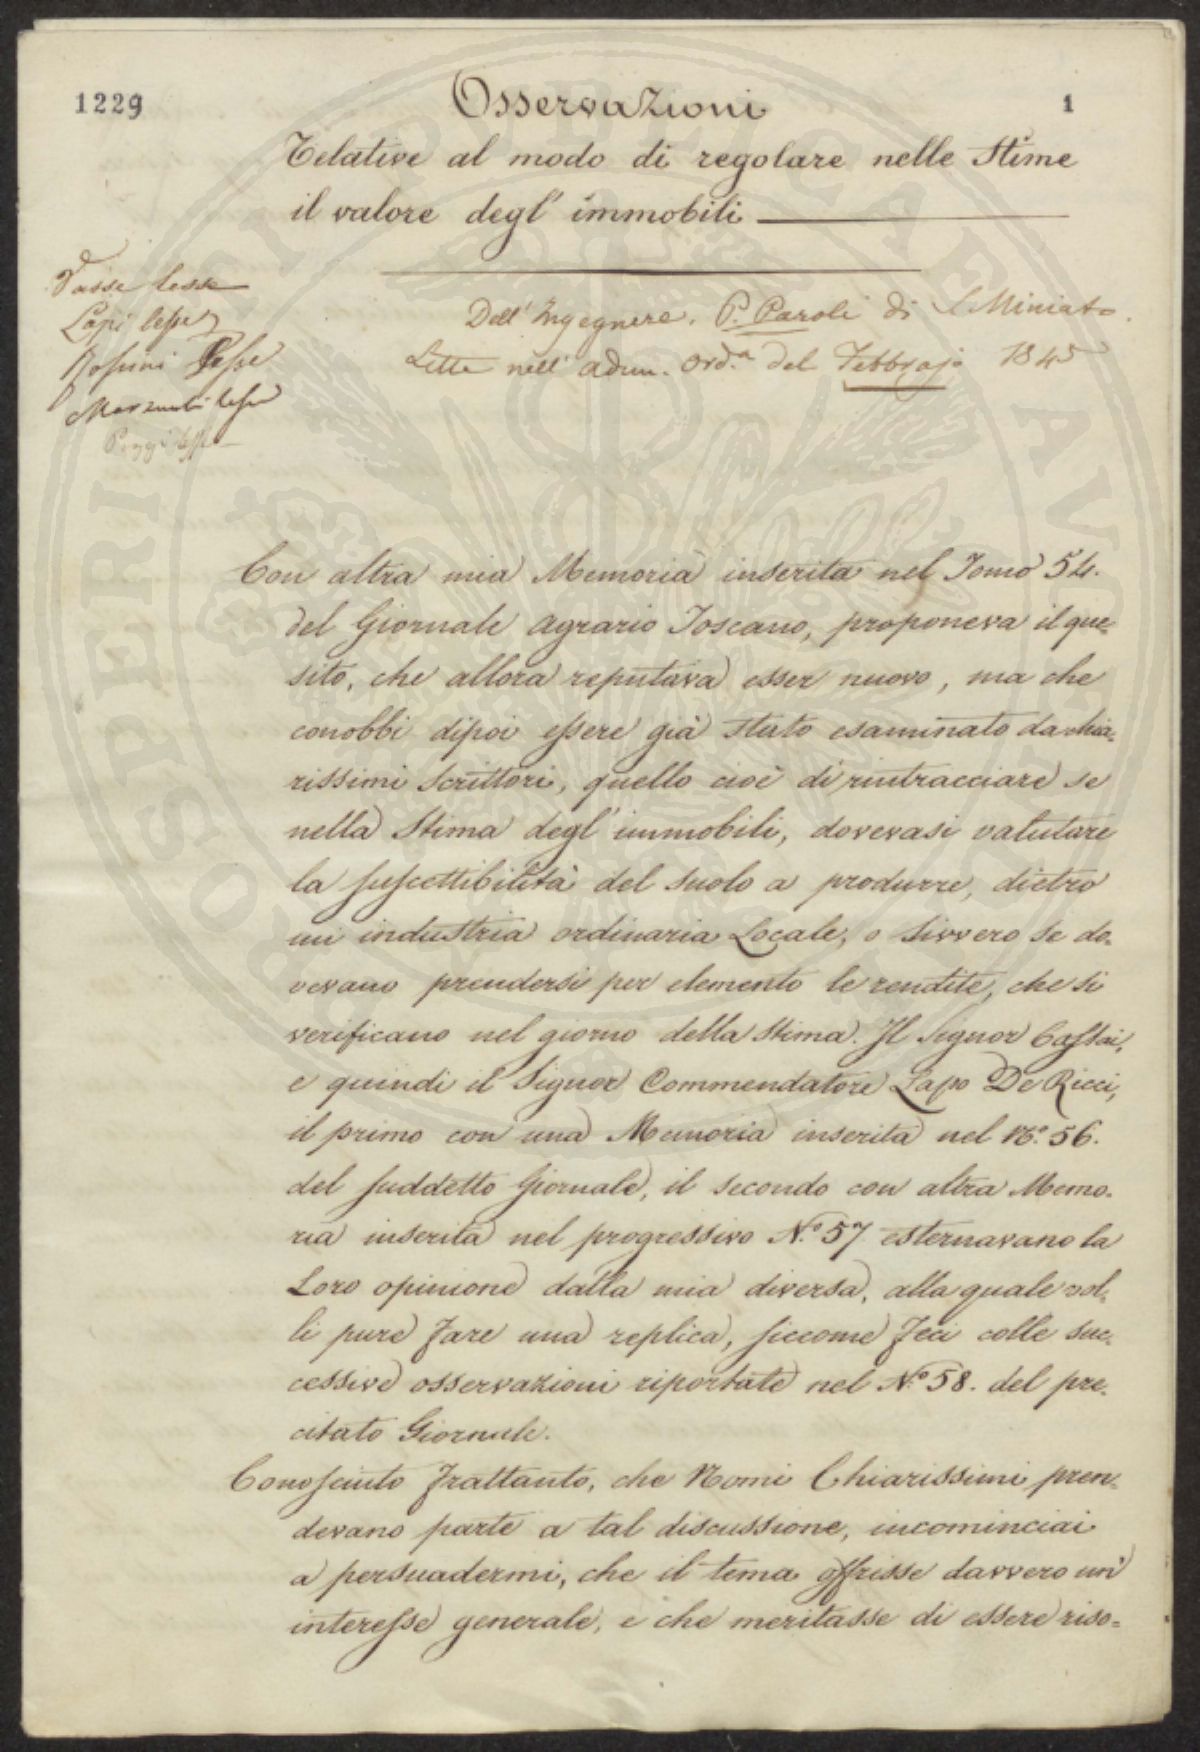 1229
1
Osservazioni
Relative al modo di regolare nelle Stime
il valore degl' immobili
Tasse lesse
Lapi lesse
Rossini lesse
lesse
Dell' Ingegnere. P. Paroli di S. Miniato.
Lette nell' adun. ord.a del Febbrajo 1845
Con altra mia Memoria inserita nel Tomo 54.
del Giornale agrario Toscano, proponeva il que-
sito, che allora reputava esser nuovo, ma che
conobbi dipoi essere già stato esaminato da chia-
rissimi scrittori, quello cioè di rintracciare se
nella Stima degl' immobili, dovevasi valutare
la suscettibilità del suolo a produrre, dietro
un industria ordinaria Locale, o sivvero se do-
vevano prendersi per elemento le rendite, che si
verificano nel giorno della Stima. Il Signor Cassai,
e quindi il Signor Commendatore Lapo De Ricci,
il primo con una Memoria inserita nel N.o 56.
del suddetto Giornale, il secondo con altra Memo-
ria inserita nel progressivo N.o 57 esternavano la
Loro opinione dalla mia diversa, alla quale vol-
li pure fare una replica, siccome feci colle suc-
cessive osservazioni riportate nel N.o 58. del pre-
citato Giornale.
Conosciuto frattanto, che Nomi Chiarissimi pren-
devano parte a tal discussione, incominciai
a persuadermi, che il tema offrisse davvero un'
interesse generale, e che meritasse di essere riso-